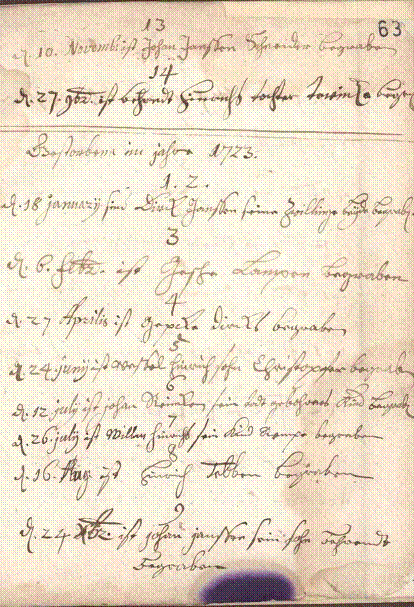 63
13
d. 10. Novembr ist Johan Janssen Schneider begraben
14
d. 27. 9br. ist Behrendt Hinrichs tochter begr
Gestorbene im jahre 1723.
1. 2.
d. 18 january sind Dirck Janssen seine Zwillinge beyde begrab.
3
d. 6. febr. ist Gesche Lampen begraben
4
d. 27 Aprilis ist Gepcke Dircks begraben
5
d. 24. juny ist Hinrich sohn Christopher begraben
6
d. 12. july ist johan Reincken sein todt gebohrnes Kind begrab
7
d. 26. july ist Willm Hinrichs sein Kind Rempe begraben
8
d. 16. Aug ist Hinrich Tebben begraben
9
d. 24 Xbr. ist johan janssen sein sohn Behrendt
Begraben